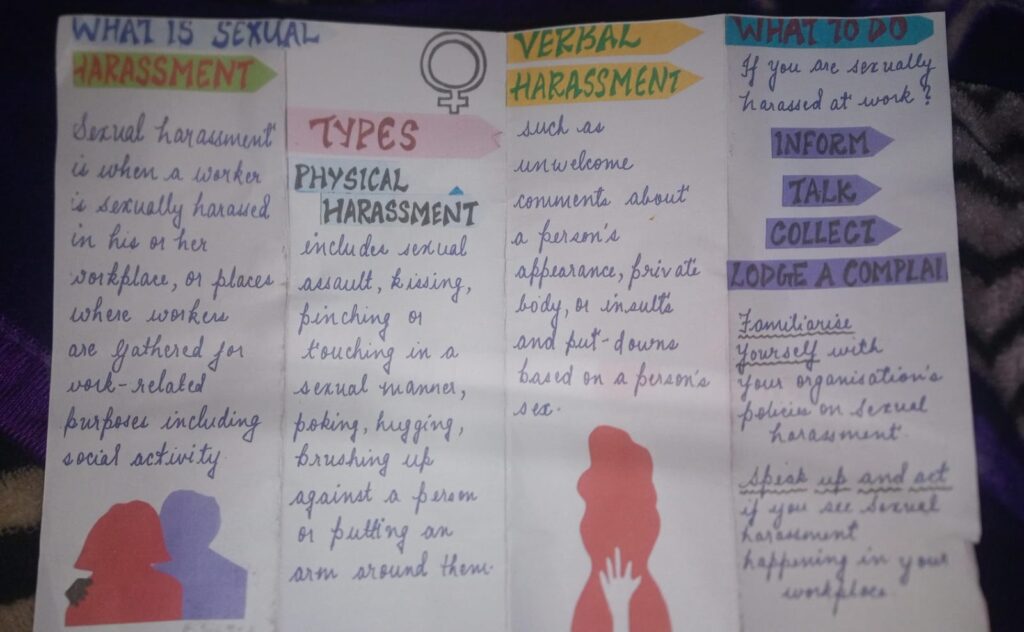 WHAT IS SEXUAL
HARASSMENT
Sexual harassment
is when a worker
is sexually harassed
in his or her
workplace, or places
where workers
are gathered for
work-related
purposes including
social activity.
TYPES
PHYSICAL
HARASSMENT
includes sexual
assault, kissing,
pinching or
touching in a
sexual manner,
poking, hugging,
brushing up
against a person
or putting an
arm around them.
VERBAL
HARASSMENT
such as
unwelcome
comments about
a person's
appearance, private
body, or insults
and put-downs
based on a person's
sex.
WHAT TO DO
If you are sexually
harassed at work?
INFORM
TALK
COLLECT
LODGE A COMPLAI
Familiarise
Yourself with
your organisation's
policies on sexual
harassment.
Speak up and act
if you see sexual
harassment
happening in your
workplace.